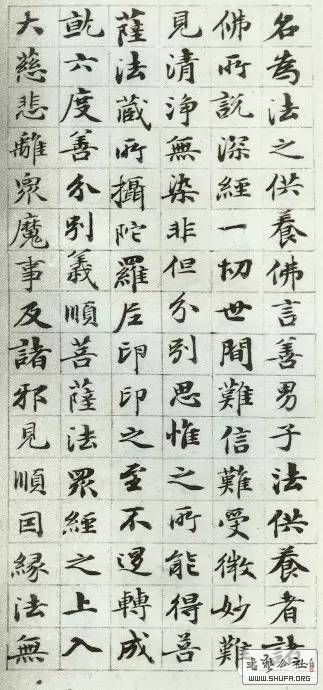 名為法之供養佛言善男子法供養者諸
佛所說深經一切世間難信難受微妙難
見清淨無染非但分別思惟之所能得菩
薩法藏所攝陀羅尼印印之至不退轉成
就六度善分別義順菩薩法眾經之上入
大慈悲離眾魔事及諸邪見順因緣法無
www.SHUFA.ORG